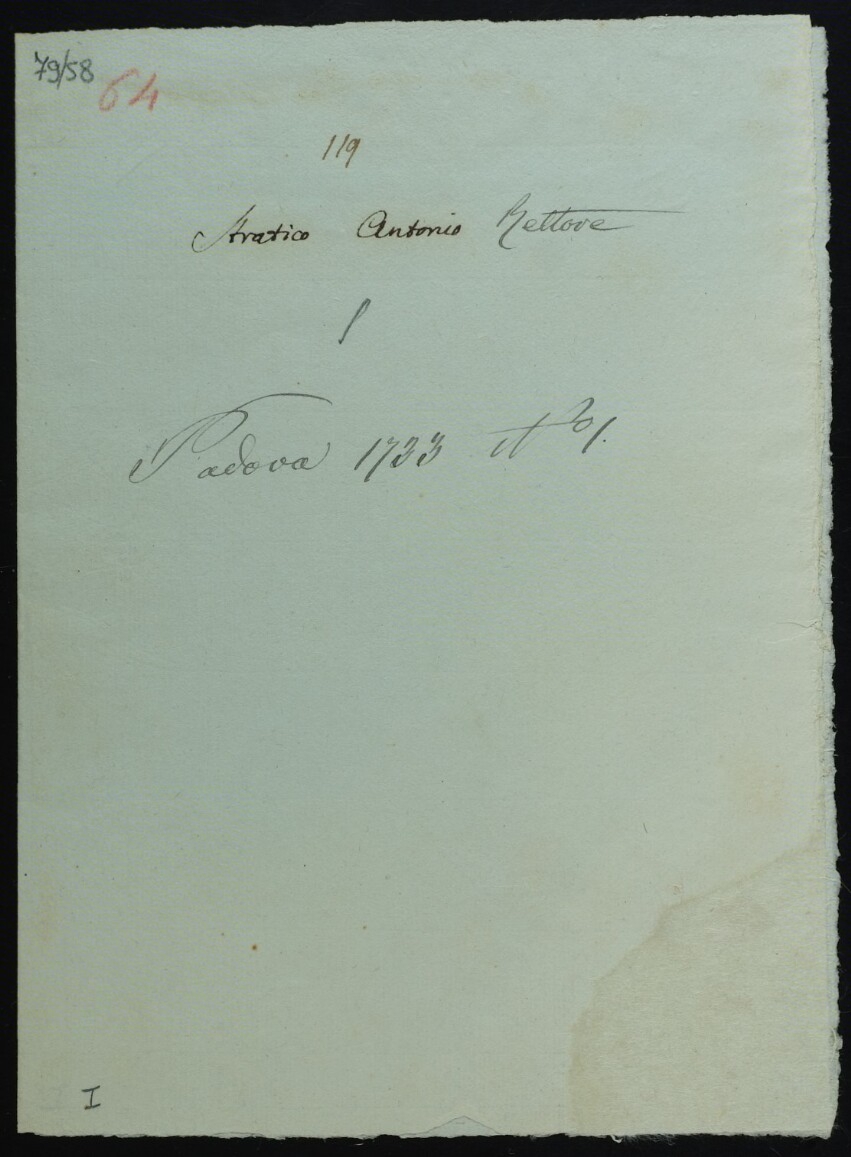 79/58
64
119
Stratico Antonio Rettore
1
Padova 1733 No 1.
I